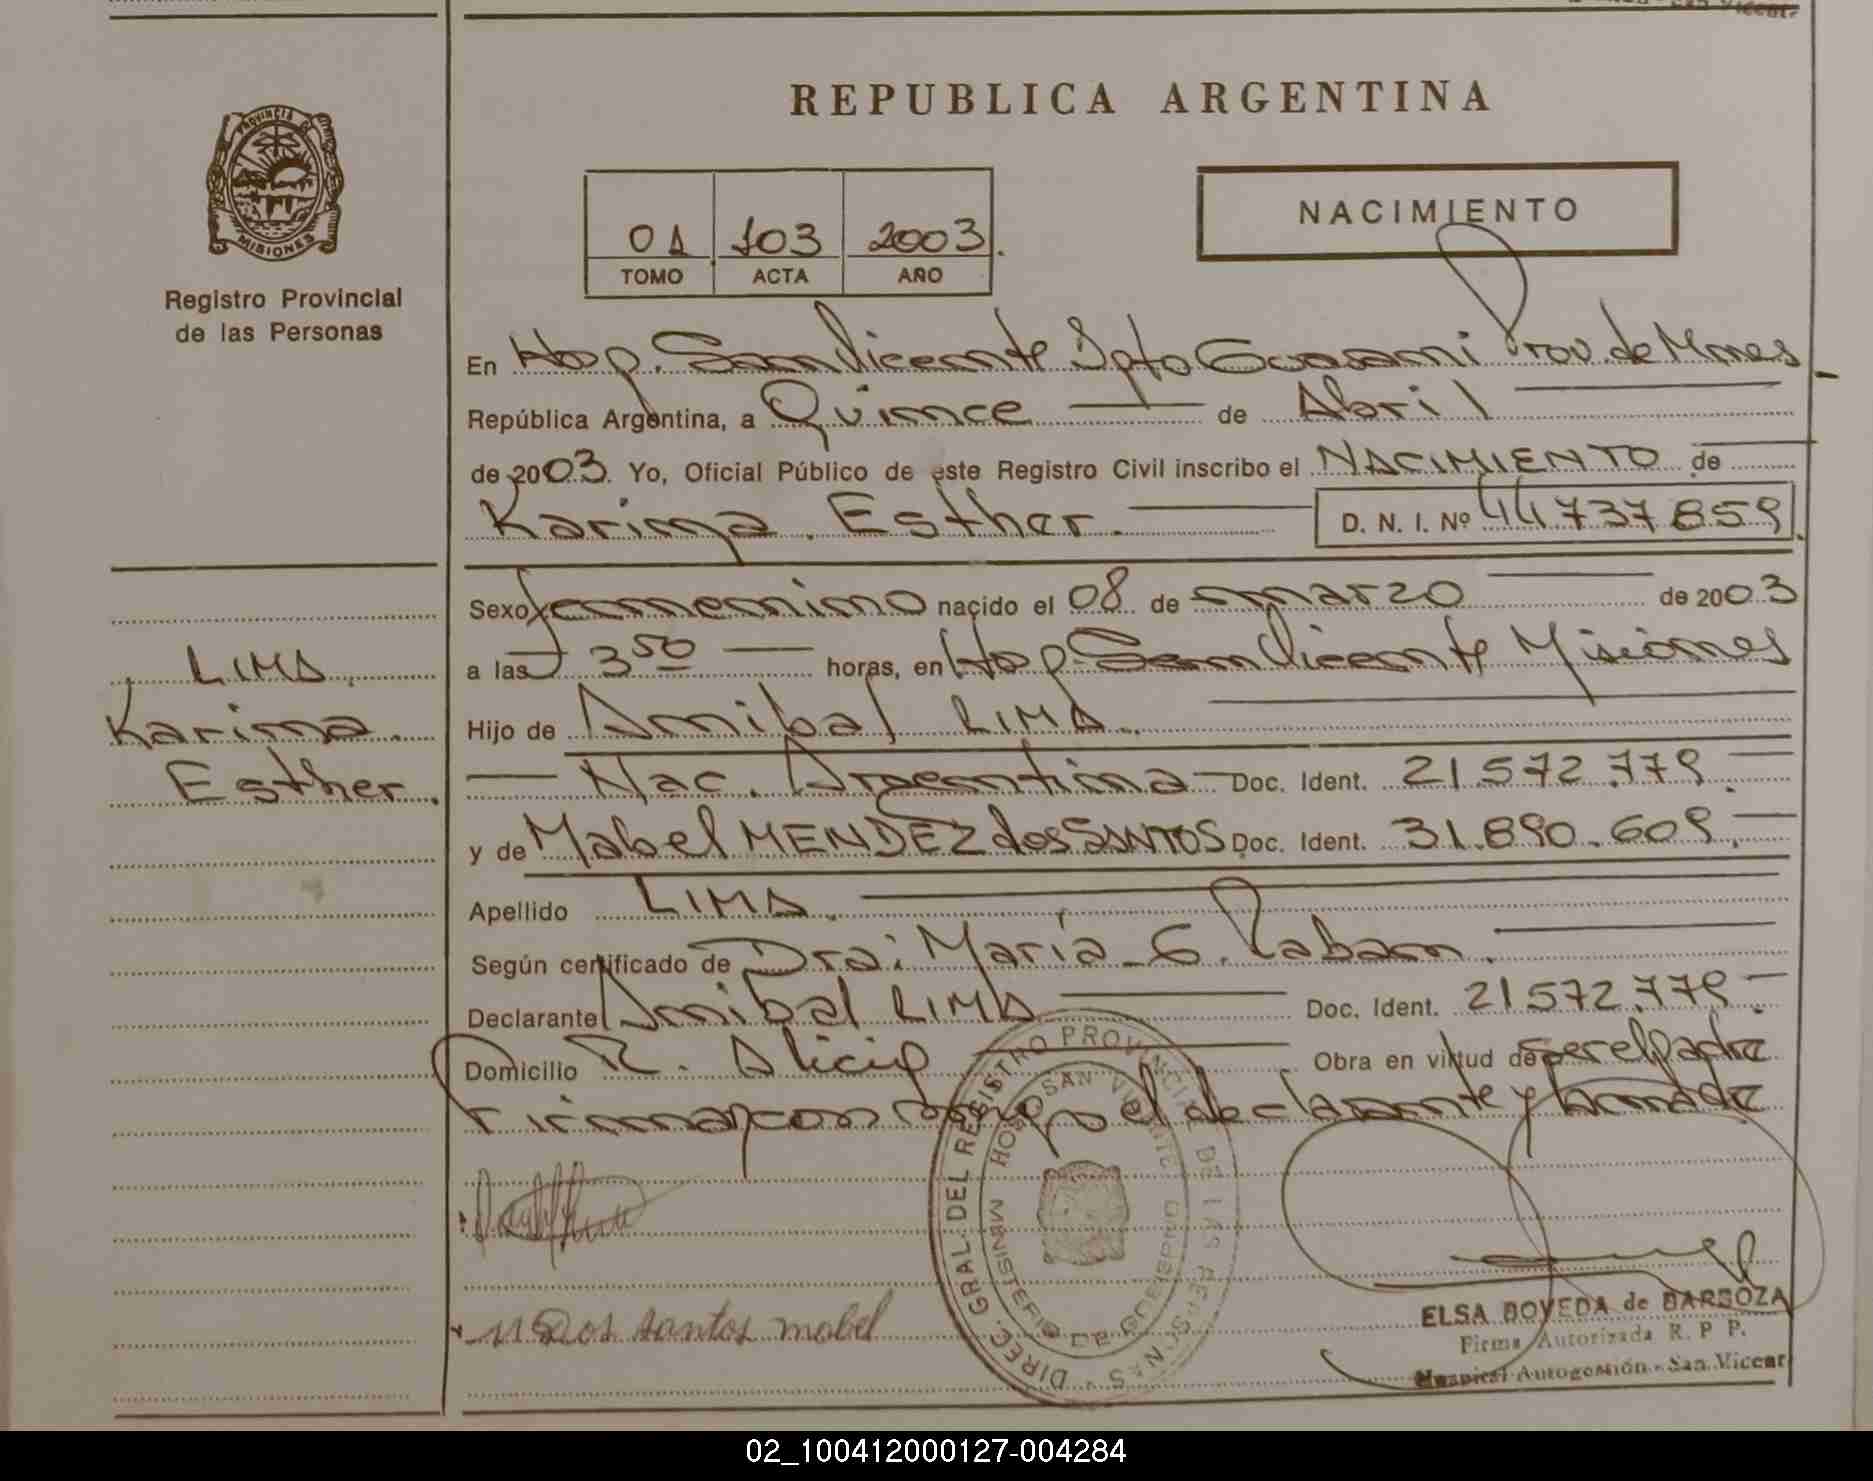 REPUBLICA ARGENTINA
PROVINCIA DE
MISIONES
Registro Provincial
de las Personas
01 103 2003
TOMO ACTA AÑO
NACIMIENTO
En Hosp. San Vicente Dpto Guarani Prov. de Mnes
República Argentina, a Quince de Abril
de 2003. Yo, Oficial Público de este Registro Civil inscribo el NACIMIENTO de
Karima Esther. D. N. I. Nº 44737859
Sexo femenino nacido el 08 de marzo de 2003
a las 3 50 horas, en Hosp. San Vicente Misiones
Hijo de Anibal LIMA.
Nac. Argentina Doc. Ident. 21.572.779
y de Mabel MENDEZ dos SANTOS Doc. Ident. 31.890.609
Apellido LIMA.
Según certificado de Dra: María G.
Declarante Anibal LIMA Doc. Ident. 21572.779
Domicilio Alicia Obra en virtud de ser el padre
Firman con migo el declarante y la madre
LIMA
Karima
Esther.
Dos santos mabel
DIREC. GRAL. DEL REGISTRO PROVINCIAL DE LAS PERSONAS
HOSP. SAN VICENTE
MINISTERIO DE GOBIERNO
ELSA BOVEDA de BARBOZA
Firma Autorizada R. P. P.
Hospital Autogestión - San Vicent
02_100412000127-004284